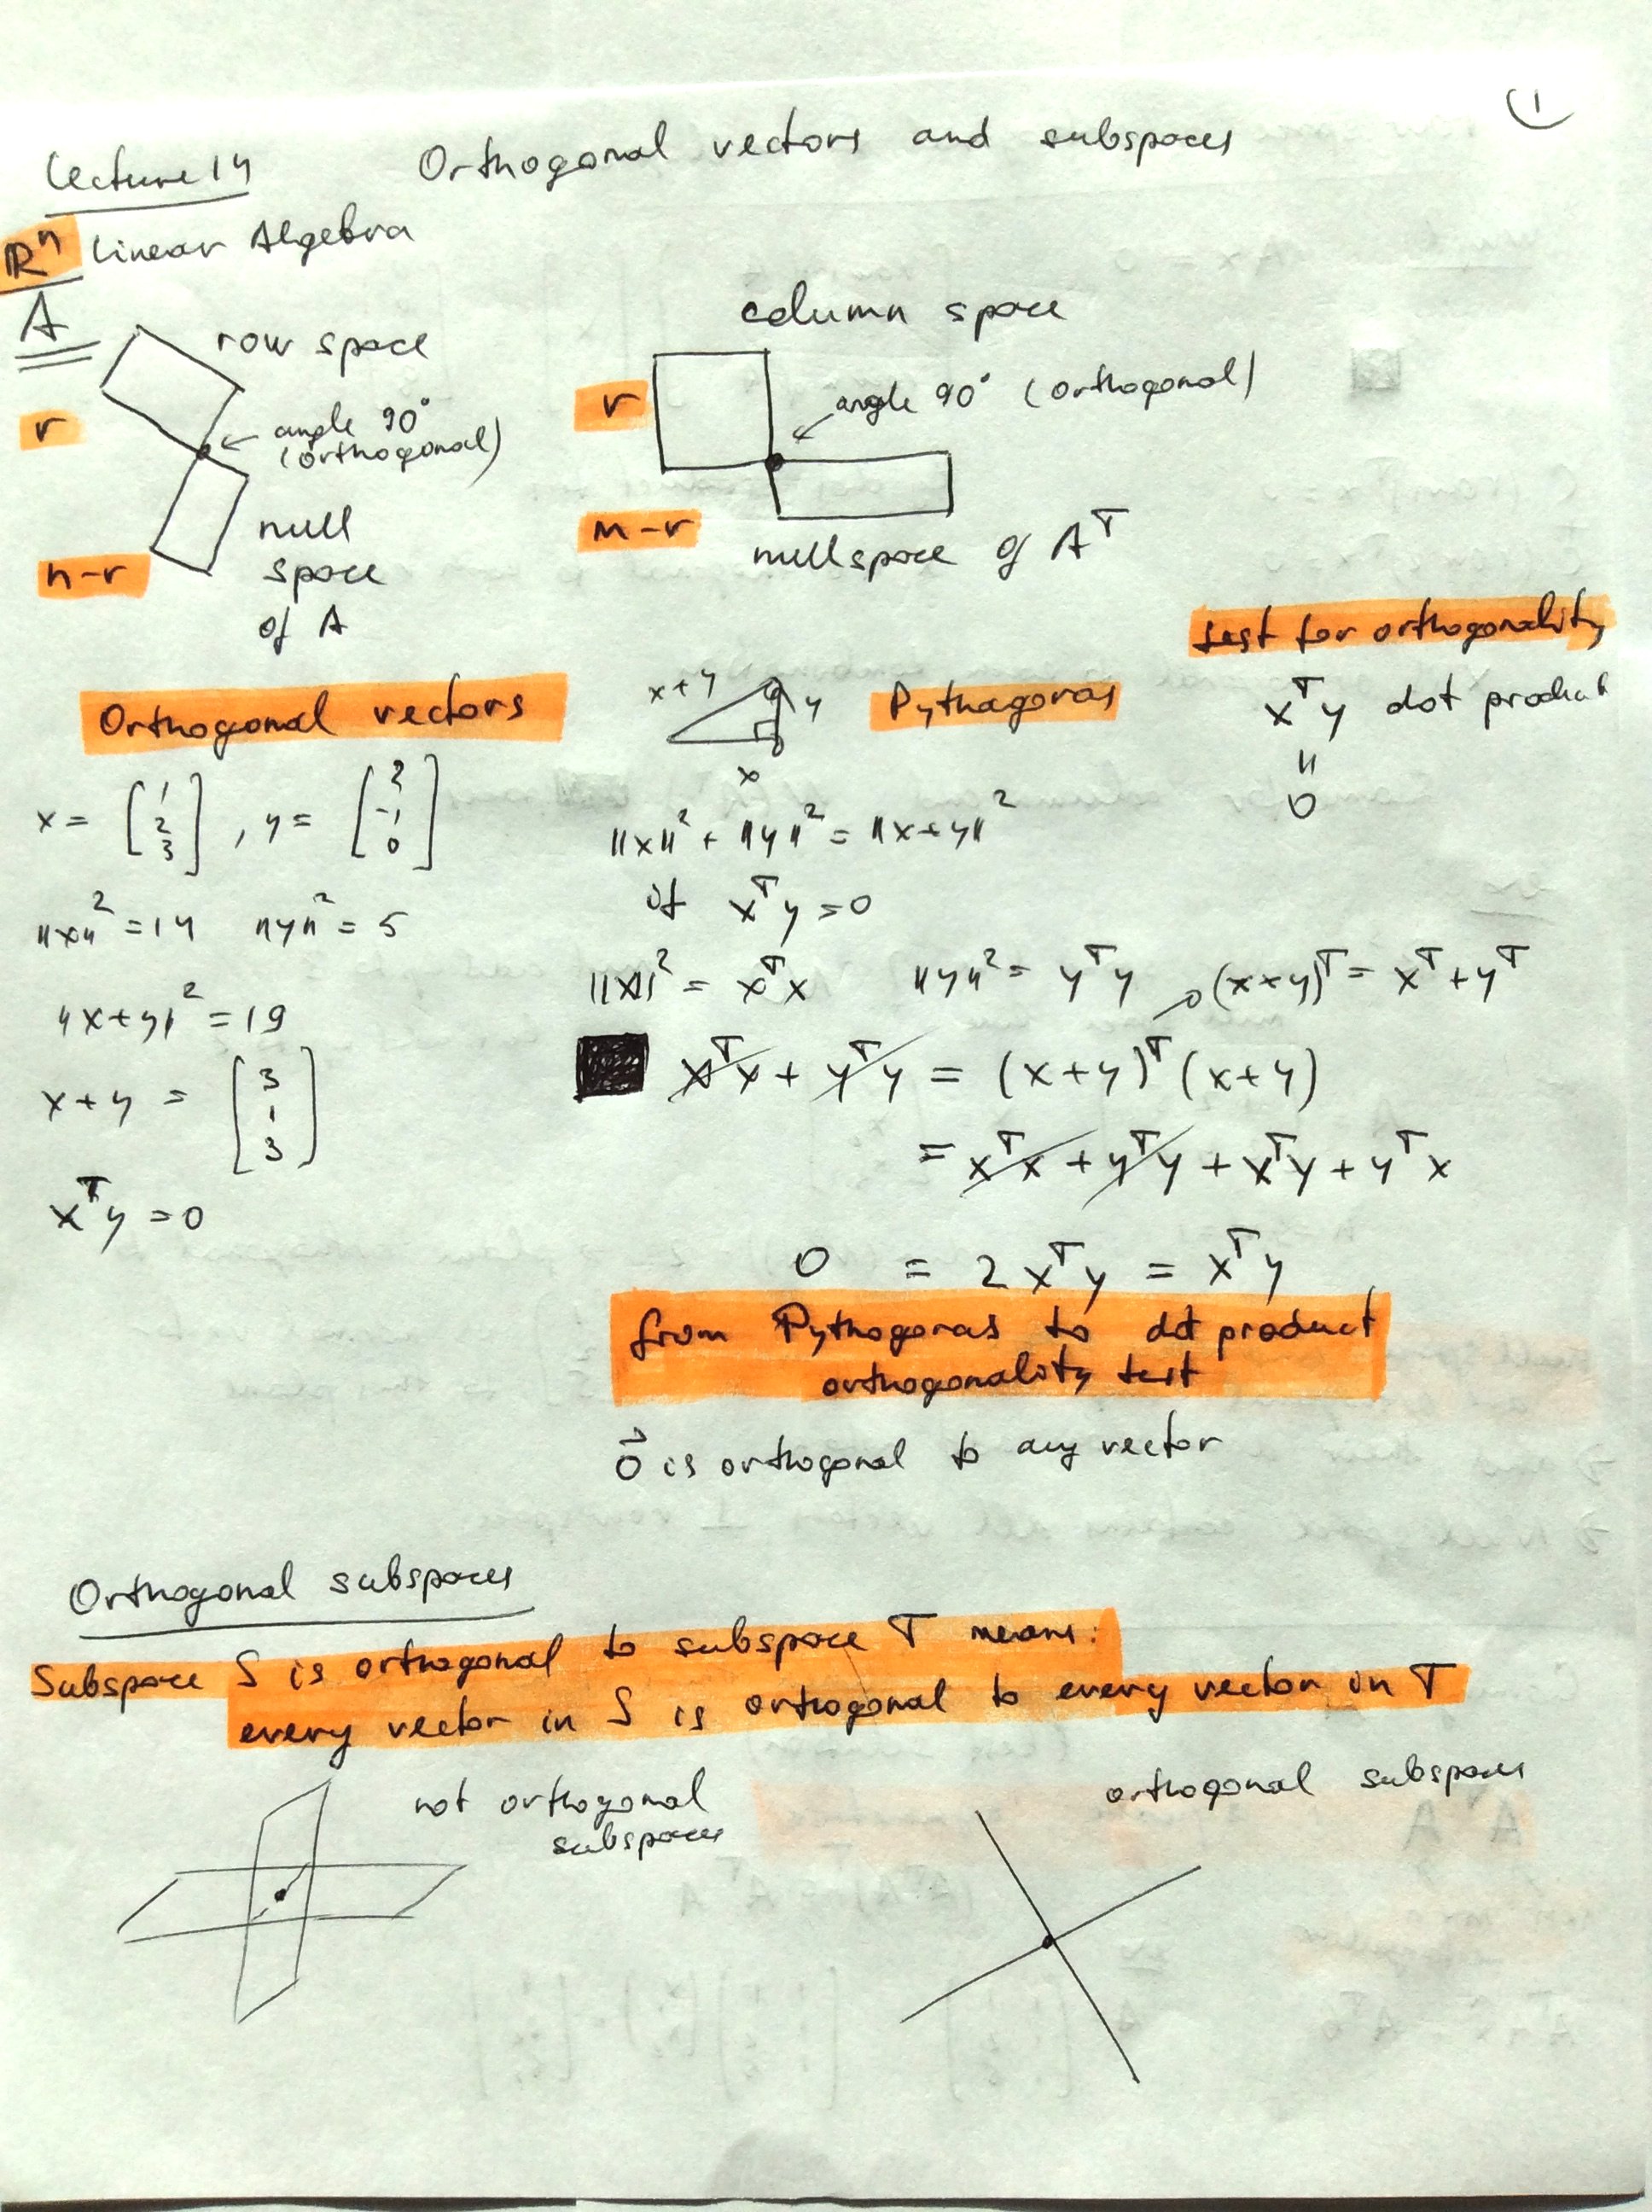 ①
Lecture 14 Orthogonal vectors and subspaces
ℝⁿ Linear Algebra
A
row space
r
angle 90°
(orthogonal)
n-r
null
space
of A
column space
r
angle 90° (orthogonal)
m-r
nullspace of Aᵀ
test for orthogonality
xᵀy dot product
=
0
Orthogonal vectors
x = [1 2 3], y = [2 -1 0]
||x||² = 14 ||y||² = 5
||x+y||² = 19
x+y = [3 1 3]
xᵀy = 0
x+y
y
x
Pythagoras
||x||² + ||y||² = ||x+y||²
if xᵀy = 0
||x||² = xᵀx ||y||² = yᵀy (x+y)ᵀ = xᵀ+yᵀ
xᵀx + yᵀy = (x+y)ᵀ(x+y)
= xᵀx + yᵀy + xᵀy + yᵀx
0 = 2xᵀy = xᵀy
from Pythagoras to dot product
orthogonality test
0⃗ is orthogonal to any vector
Orthogonal subspaces
Subspace S is orthogonal to subspace T means:
every vector in S is orthogonal to every vector in T
not orthogonal
subspaces
orthogonal subspaces